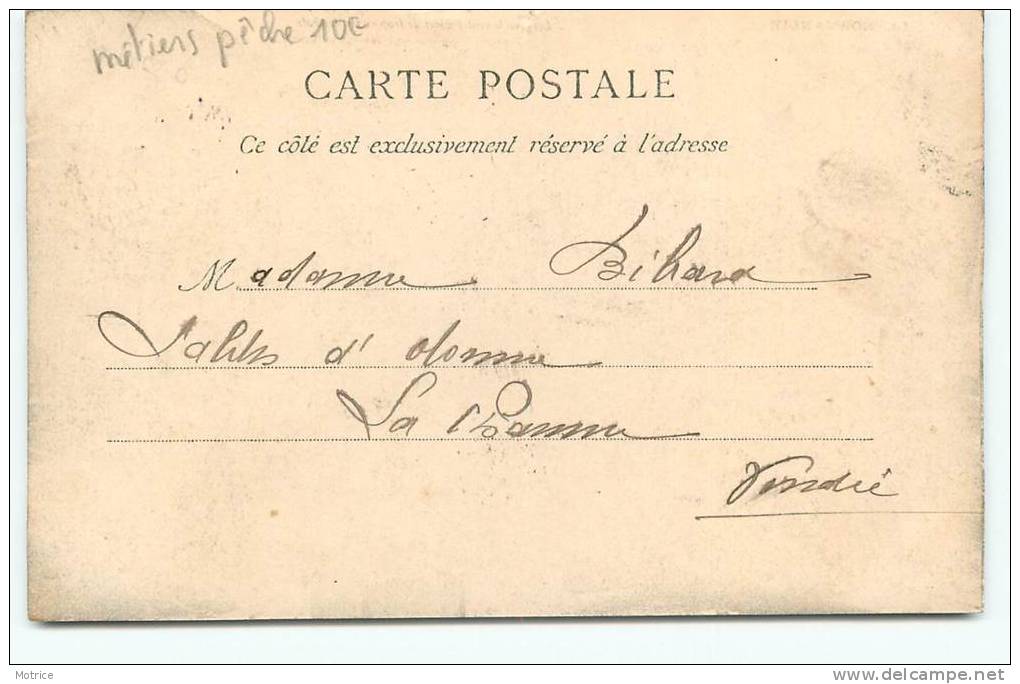 métiers pêche 10€
CARTE POSTALE
Ce côté est exclusivement réservé à l'adresse
Madame Bihard
Sables d' olonne
La Chaume
Vendée
Motrice
www.delcampe.net